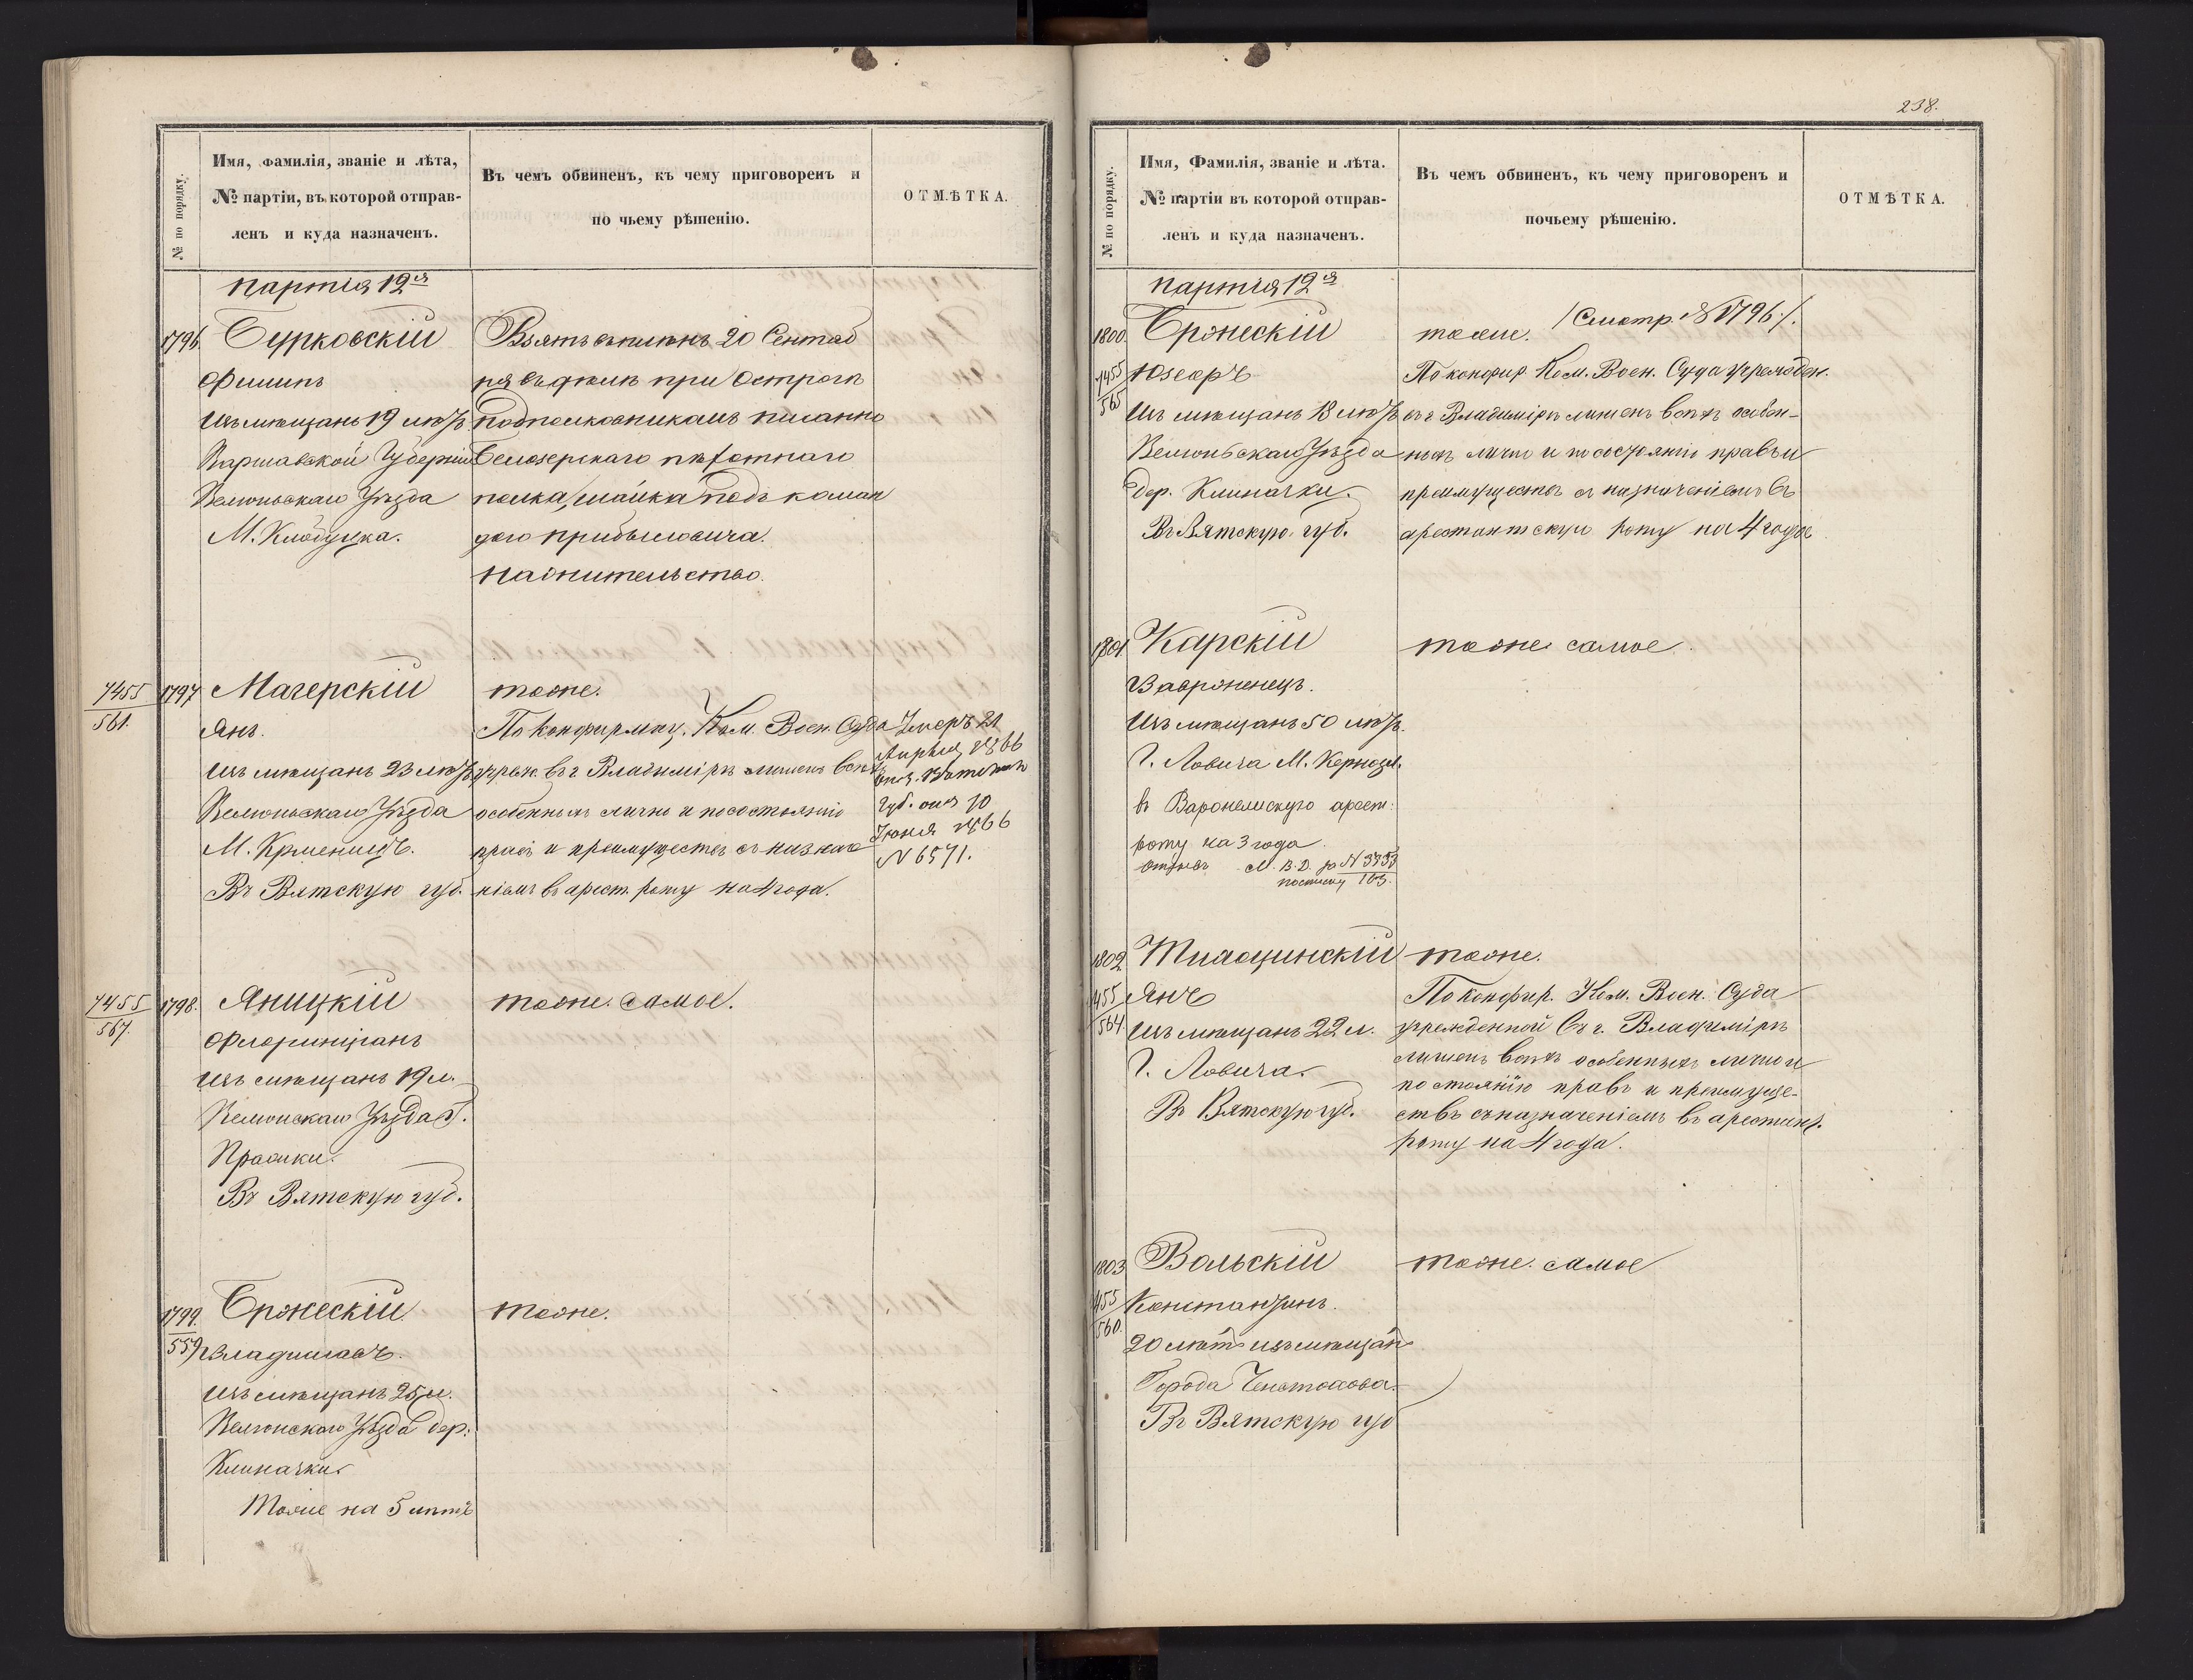 № по порядку.
Имя, фамилія, званіе и лѣта,
№ партіи, въ которой отправ-
ленъ и куда назначенъ.
Въ чемъ обвиненъ, къ чему приговоренъ и
по чьему рѣшенію.
ОТМѢТКА.
партія 12я
1796.
Бурковскій
Филипъ
Изъ мѣщанъ 19 лѣтъ
Варшавской Губерніи
Велюньскаго Уѣзда
М. Клобуцка.
Взятъ въ плѣнъ 20 Сентяб
ря въ дѣлѣ при Острогѣ
подполковникомъ
Белозерскаго пѣхотнаго
полка, шайка подъ коман
дою Прибыловича.
7455
561.
1797
Магерскій
Янъ.
Изъ мѣщанъ 23 лѣтъ
Велюньскаго Уѣзда
М.
Въ Вятскую губ.
тоже.
По конфирмац. Ком. Воен. Суда
учреж. въ г. Владимірѣ лишенъ всѣхъ
особенныхъ лично и по состоянію
правъ и преимуществъ съ назначе
ніемъ въ арест. роту на 4 года.
Умеръ 21
Апрѣля 1866
Губ. отъ 10
Іюня 1866
№ 6571.
7455
567.
1798.
Яницкій
Флорищіанъ
Изъ мѣщанъ 19 л.
Велюнскаго Уѣзда
Прашки.
Въ Вятскую губ.
тоже самое.
1799.
559
Бржескій
Владиславъ.
Изъ мѣщанъ 25 л.
Велюнскаго Уѣзда дер.
Клиначки
Тоже на 5 лѣтъ
тоже.
238.
№ по порядку.
Имя, Фамилія, званіе и лѣта.
№ партіи въ которой отправ-
ленъ и куда назначенъ.
Въ чемъ обвиненъ, къ чему приговоренъ и
почьему рѣшенію.
ОТМѢТКА.
партія 12я
1800.
7455
565
Бржескій
Юзефъ
Изъ мѣщанъ 18 лѣтъ
Велюньскаго Уѣзда
дер. Клиначки.
Въ Вятскую губ.
тоже. /Смотр. № 1796/.
По конфир. Ком. Воен. Суда учрежден.
въ г. Владимірѣ лишенъ всѣхъ особен-
ныхъ лично и по состоянію правъ и
преимуществъ съ назначеніемъ въ
арестантскую роту на 4 года
1801
Карскій
Вавроженецъ.
Изъ мѣщанъ 50 лѣтъ.
Г. Ловича М.
въ Воронежскую арест.
роту на 3 года.
М. В. Д. за № 3753
103.
тоже самое.
1802
7455
564.
Янъ
Изъ мѣщанъ 22 л.
Г. Ловича.
Въ Вятскую губ.
тоже.
По конфир. Ком. Воен. Суда
учрежденной въ г. Владимірѣ
лишенъ всѣхъ особенныхъ лично и
по стоянію правъ и преимуще-
ствъ съ назначеніемъ въ арестант.
роту на 4 года.
1803
7455
560.
Вольскій
Константинъ.
20 лѣтъ изъ мѣщанъ
Города Ченстохова.
Въ Вятскую губ
тоже самое